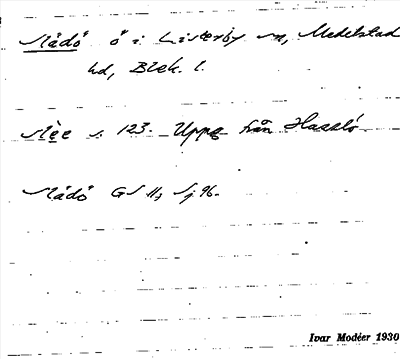 Mådö ö i Listerby sn, Medelstad
hd, Blek. l.
s. 123. Uppg från Hasslö
Mådö GS 11, Sj. 96.
Ivar Modéer 1930